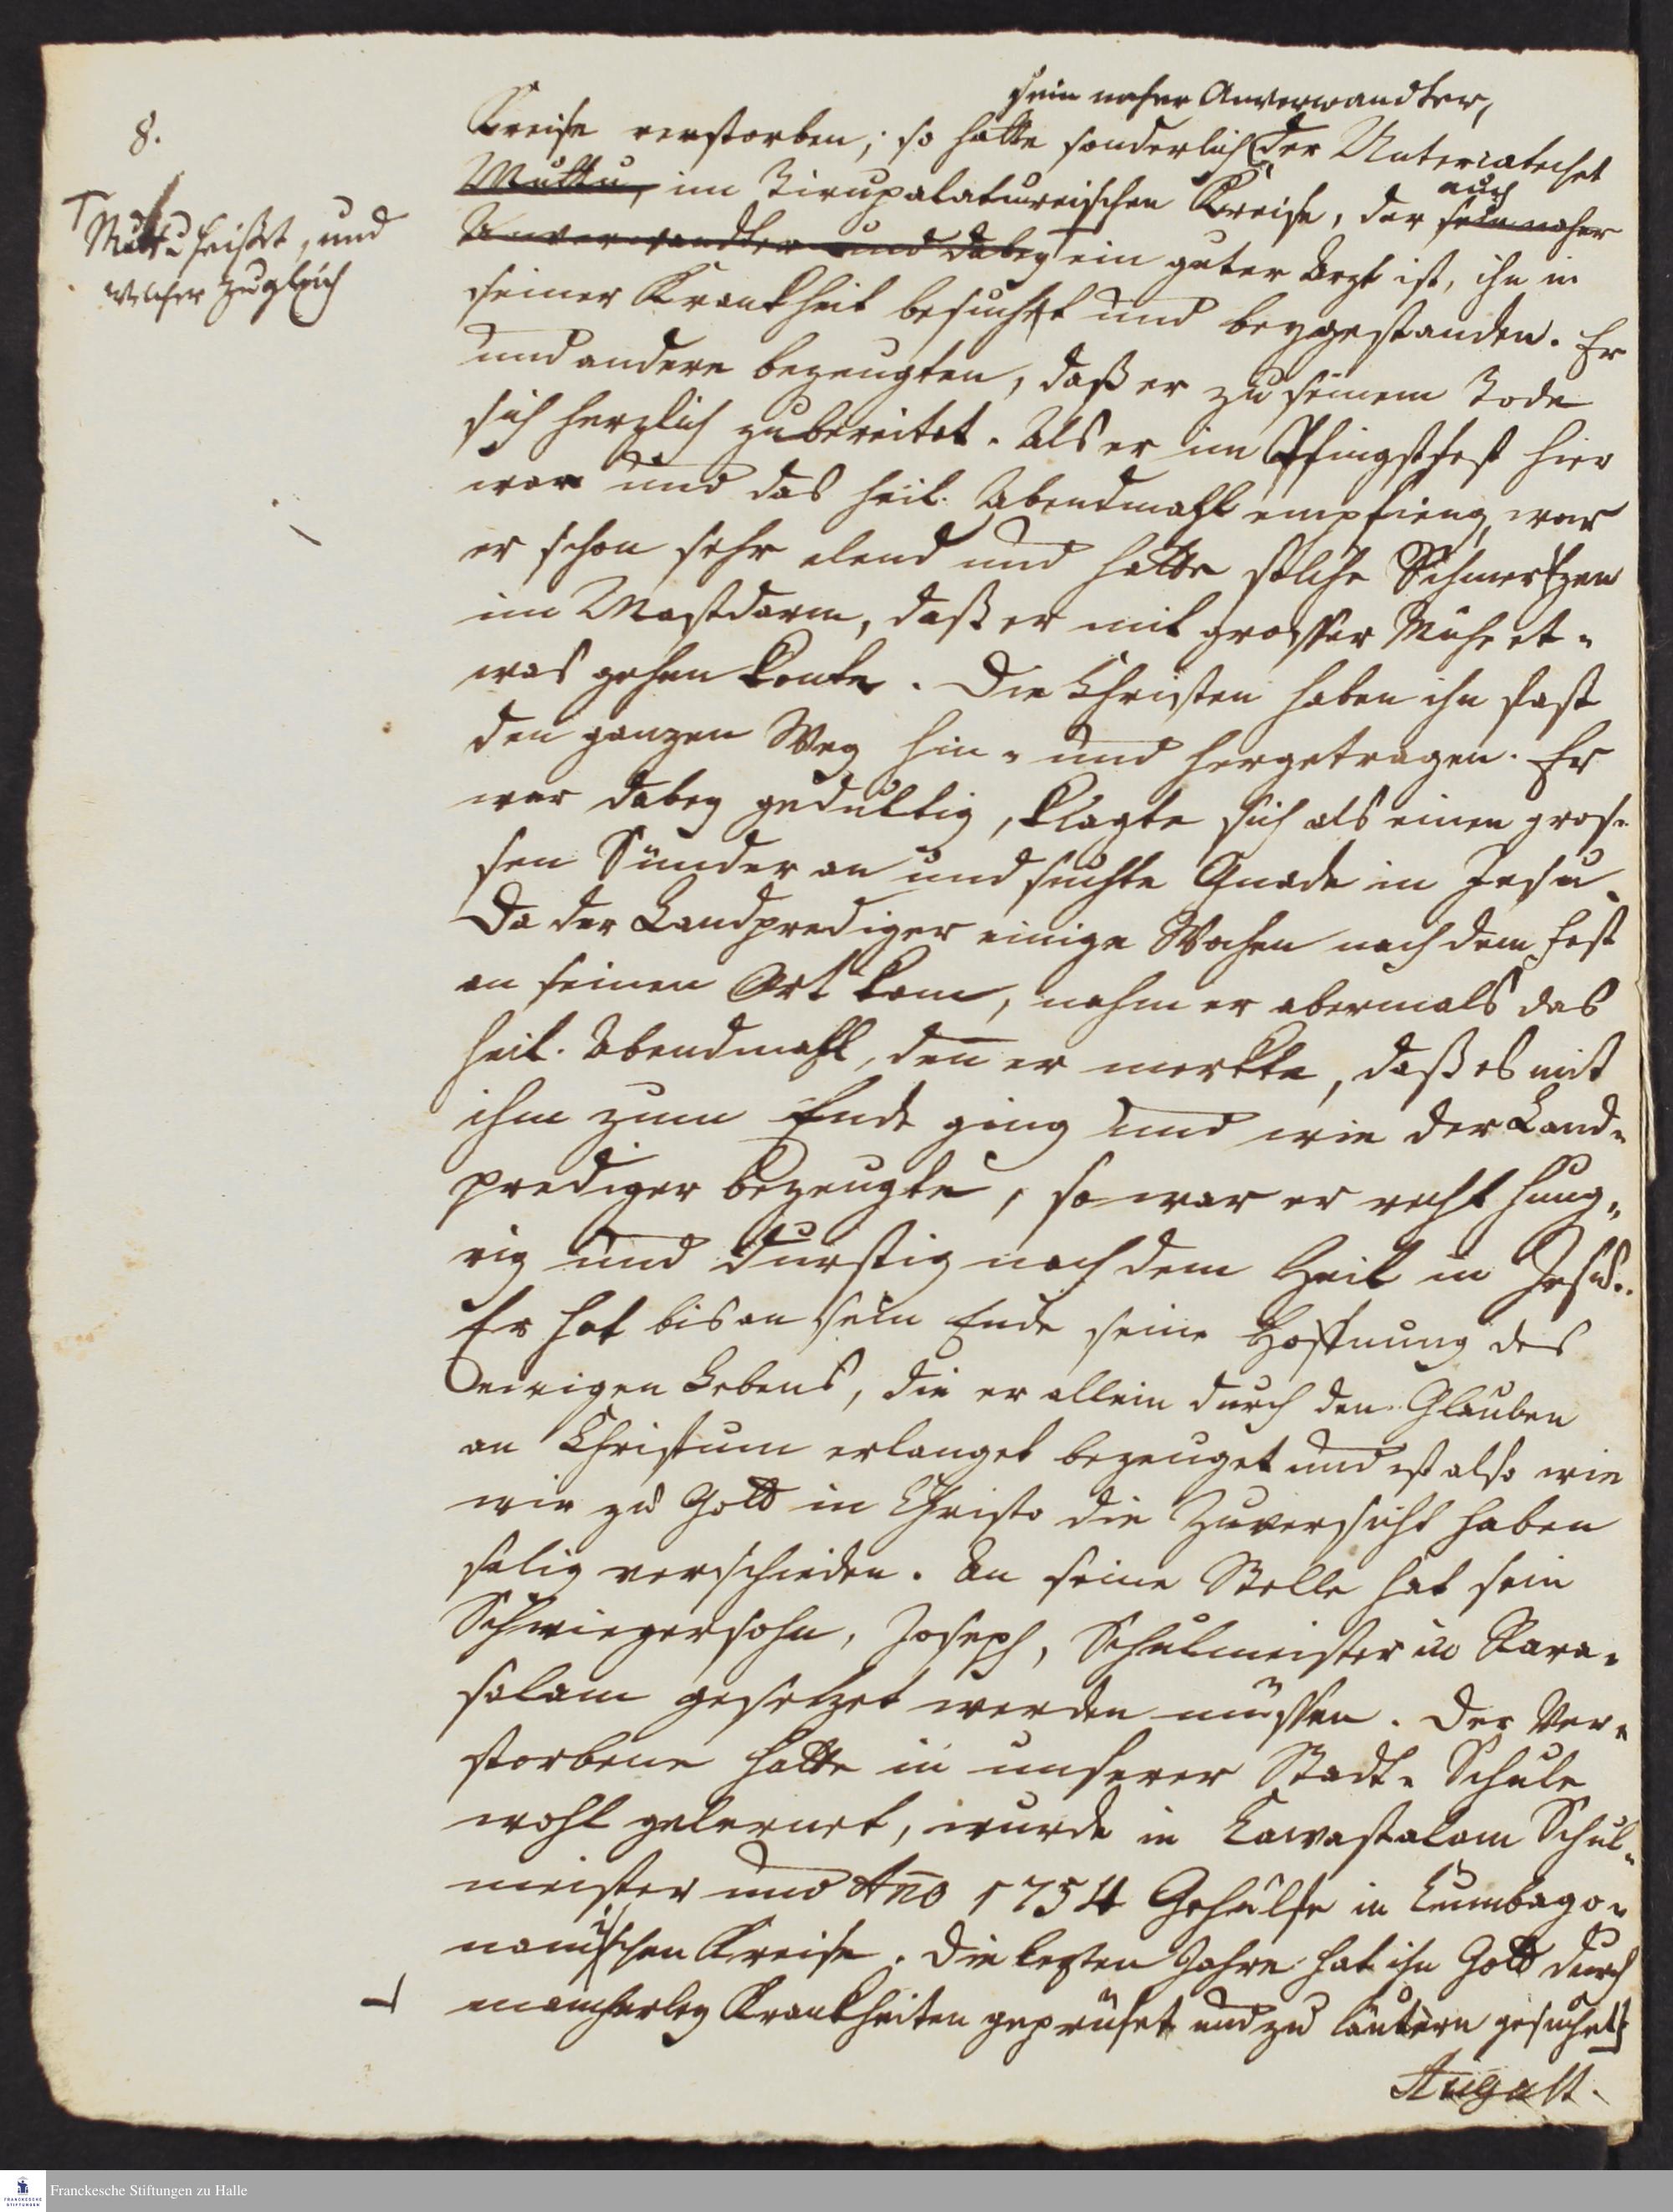 8.
sein naher Anverwandter,
Kreise verstorben; so hatte sonderlich der Untercatechet
Muttu, im Tirupalatureischen Kreise, der sein naher
auch
Anverwandter und dabey ein guter Arzt ist, ihn in
Muttu heisset, und
welcher zugleich
seiner Krankheit besucht und beygestanden. Er
und andere bezeugten, daß er zu seinem Tode
sich herzlich zubereitet. Als er im Pfingstfest hier
war und das heil. Abendmahl empfieng, war
er schon sehr elend und hatte solche Schmertzen
im Mastdarm, daß er mit grosser Mühe et-
was gehen konte. Die Christen haben ihn fast
den ganzen Weg hin- und hergetragen. Er
war dabey gedultig, klagte sich als einen gros-
sen Sünder an und suchte Gnade in Jesu.
Da der Landprediger einige Wochen nach dem Fest
an seinen Ort kam, nahm er abermals das
heil. Abendmahl, deñ er merkte, daß es mit
ihm zum Ende ging und wie der Land-
prediger bezeugte, so war er recht hung-
rig und durstig nach dem Heil in Jesu.
Er hat bis an sein Ende seine Hoffnung des
ewigen Lebens, die er allein durch den Glauben
an Christum erlanget bezeuget und ist also wie
wir zu Gott in Christo die Zuversicht haben
selig verschieden. An seine Stelle hat sein
Schwiegersohn, Joseph, Schulmeister in
salam gesetzet werden müssen. Der Ver-
storbene hatte in unserer Stadt-Schule
wohl gelernet, wurde in Cawastalam Schul-
meister und Año 1754 Gehülfe in Cumbago-
namischen Kreise. Die lezten Jahre hat ihn Gott durch
mancherley Krankheiten geprüfet und zu läutern gesuchet
August.
Franckesche Stiftungen zu Halle
FRANCKESCHE STIFTUNGEN